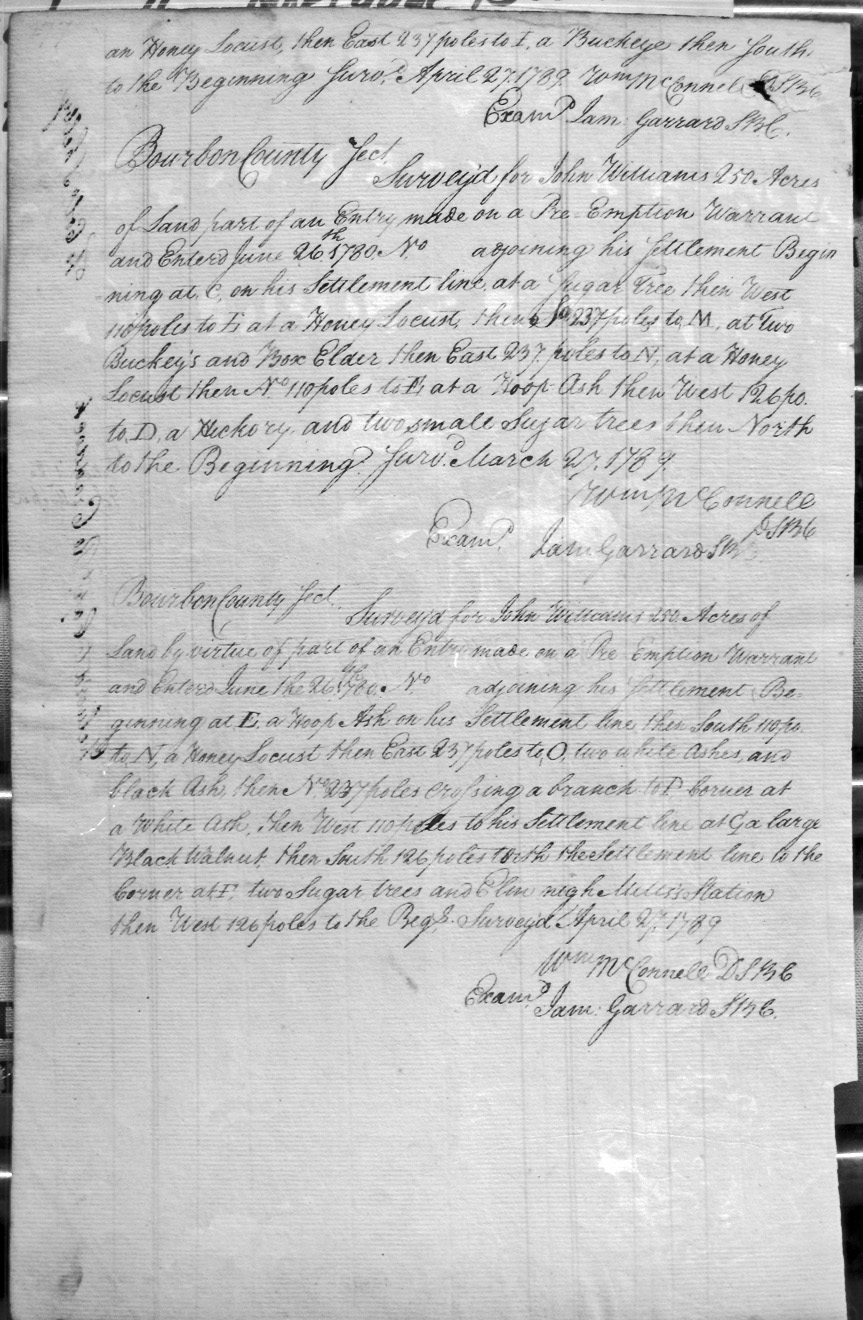 an Honey Locust, then East 237 poles to I, a Buckeye then South
to the Beginning Survd. April 27. 1789. Wm McConnell DSBC
Examd. Jam: Garrard SBC.
Bourbon County Sect.
Survey'd for John Williams 250 Acres
of Land part of an Entry made on a Pre-Emption Warrant
and Enterd June 26th 1780. No adjoining his Settlement Begin
ning at C, on his Settlement line, at a Sugar Tree then West
110 poles to L at a Honey Locust, then So 237 poles to M, at two
Buckey's and Box Elder then East 237 poles to N, at a Honey
Locust then No. 110 poles to E, at a Hoop-Ash then West 126 po.
to D, a Hickory and two small Sugar trees then North
to the Beginning. Survd. March 27. 1789
Wm McConnell
DSBC
Examd. Jam Garrard SB
Bourbon County Sect.
Survey'd for John Williams 250 Acres of
Land by virtue of part of an Entry made on a Pre Emption Warrant
and Enterd June the 26th 1780. No adjoining his Settlement Be-
ginning at E, a Hoop Ash on his Settlement line then South 110 po.
to N, a Honey Locust then East 237 poles to O, two white Ashes, and
black Ash, then No. 237 poles crossing a branch to P corner at
a White Ash, then West 110 poles to his Settlement line at G a large
Black Walnut, then South 126 poles with the Settlement line to the
Corner at F, two Sugar trees and Elm nigh Mills's Station
then West 126 poles to the Begg. Survey'd April 27. 1789
Wm McConnell DSBC
Examd. Jam: Garrard SBC.